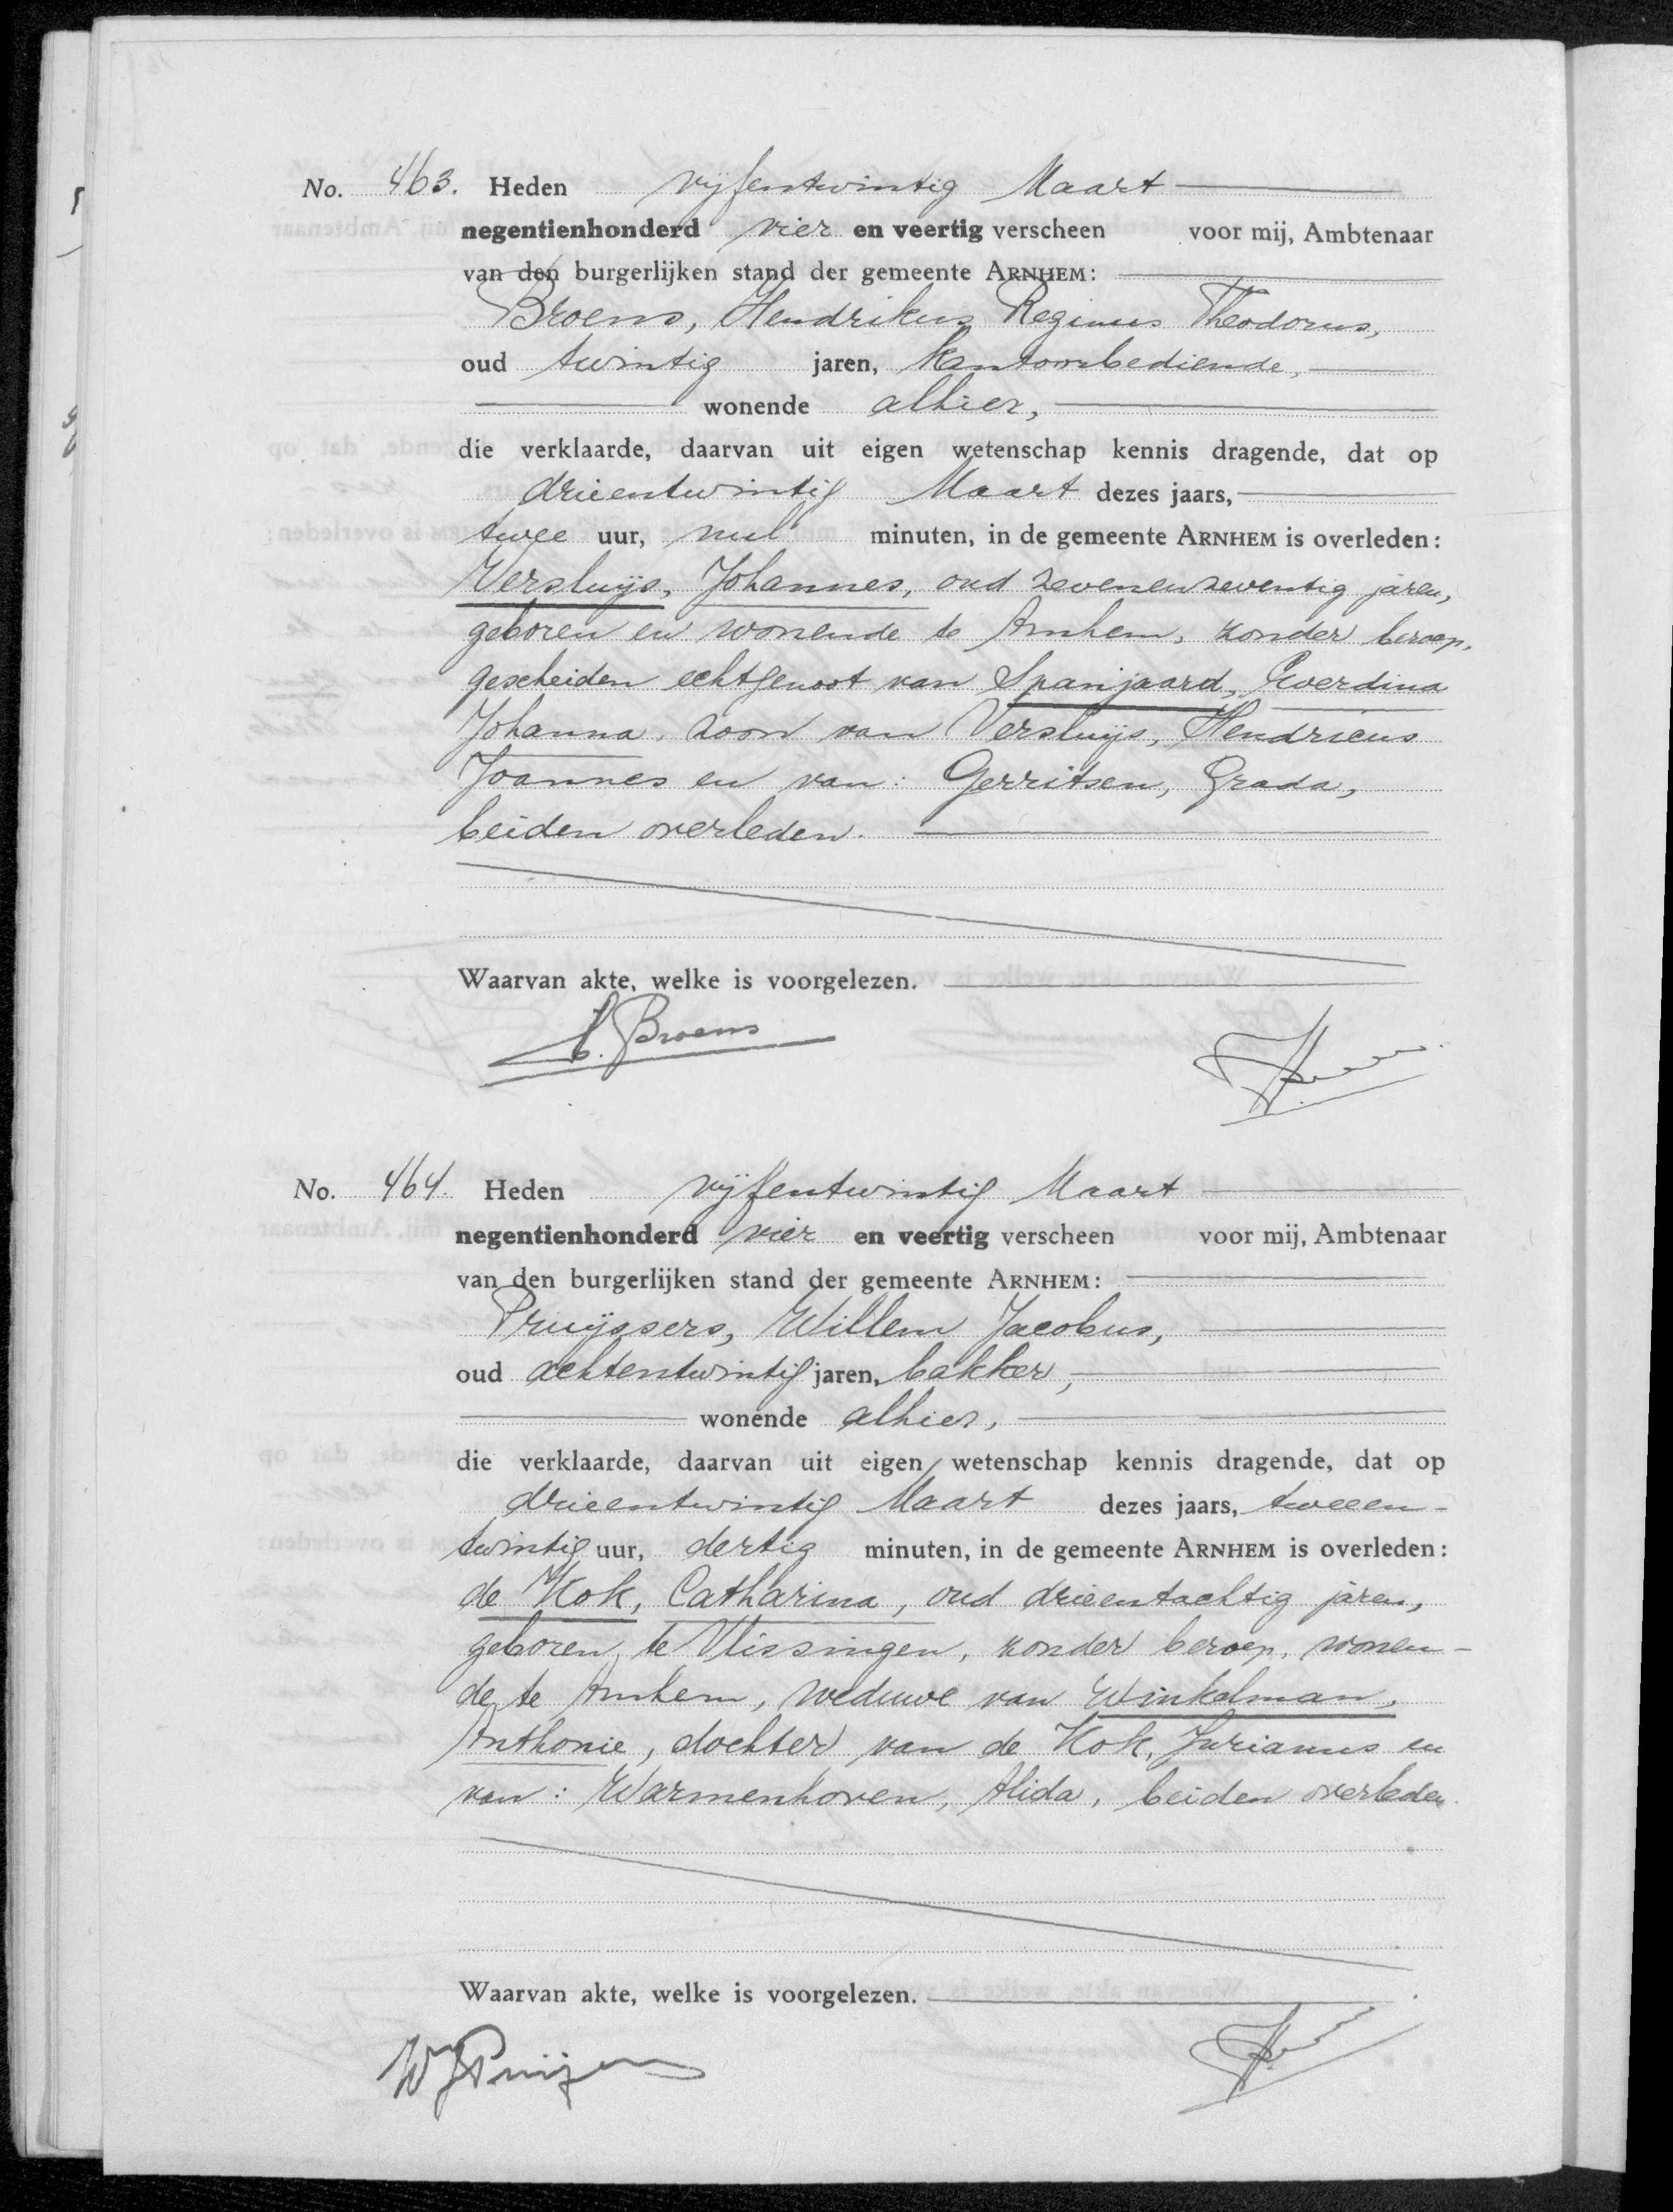 No. 463. Heden vijfentwintig Maart
negentienhonderd vier en veertig verscheen voor mij, Ambtenaar
van den burgerlijken stand der gemeente ARNHEM:
Broens, Hendrikus Reginus Theodorus,
oud twintig jaren, kantoorbediende,
wonende alhier,
die verklaarde, daarvan uit eigen wetenschap kennis dragende, dat op
drieentwintig Maart dezes jaars,
twee uur, nul minuten, in de gemeente ARNHEM is overleden:
Versluijs, Johannes, oud zevenenzeventig jaren,
geboren en wonende te Arnhem, zonder beroep,
gescheiden echtgenoot van Spanjaard, Everdina
Johanna, zoon van Versluijs, Hendricus
Joannes en van: Gerritsen, Grada,
beiden overleden.
Waarvan akte, welke is voorgelezen.
H. Broens
No. 464. Heden vijfentwintig Maart
negentienhonderd vier en veertig verscheen voor mij, Ambtenaar
van den burgerlijken stand der gemeente ARNHEM:
Pruijssers, Willem Jacobus,
oud achtentwintig jaren, bakker,
wonende alhier,
die verklaarde, daarvan uit eigen wetenschap kennis dragende, dat op
drieentwintig Maart dezes jaars, tweeen-
twintig uur, dertig minuten, in de gemeente ARNHEM is overleden:
de Kok, Catharina, oud drieentachtig jaren,
geboren te Vlissingen, zonder beroep, wonen-
de te Arnhem, weduwe van Winkelman,
Anthonie, dochter van de Kok, Jurianus en
van: Warmenhoven, Alida, beiden overleden.
Waarvan akte, welke is voorgelezen.